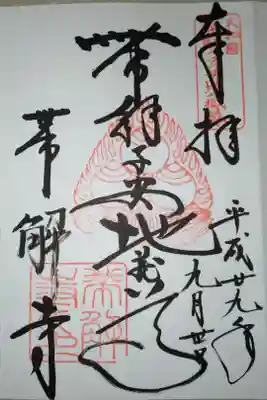 奉拝
平成廿九年
九月廿日
帶解子安地蔵
帯解寺